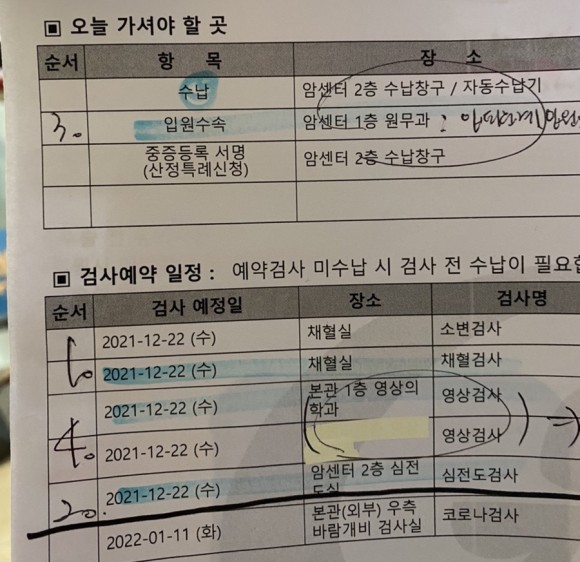 ▣ 오늘 가셔야 할 곳
순서 항 목 장 소
수납 암센터 2층 수납창구 / 자동수납기
3. 입원수속 암센터 1층 원무과 :
중증등록 서명 (산정특례신청) 암센터 2층 수납창구
▣ 검사예약 일정 : 예약검사 미수납 시 검사 전 수납이 필요합
순서 검사 예정일 장소 검사명
2021-12-22 (수) 채혈실 소변검사
1. 2021-12-22 (수) 채혈실 채혈검사
2021-12-22 (수) 본관 1층 영상의학과 영상검사
4. 2021-12-22 (수) 영상검사
2. 2021-12-22 (수) 암센터 2층 심전도실 심전도검사
2022-01-11 (화) 본관(외부) 우측 바람개비 검사실 코로나검사